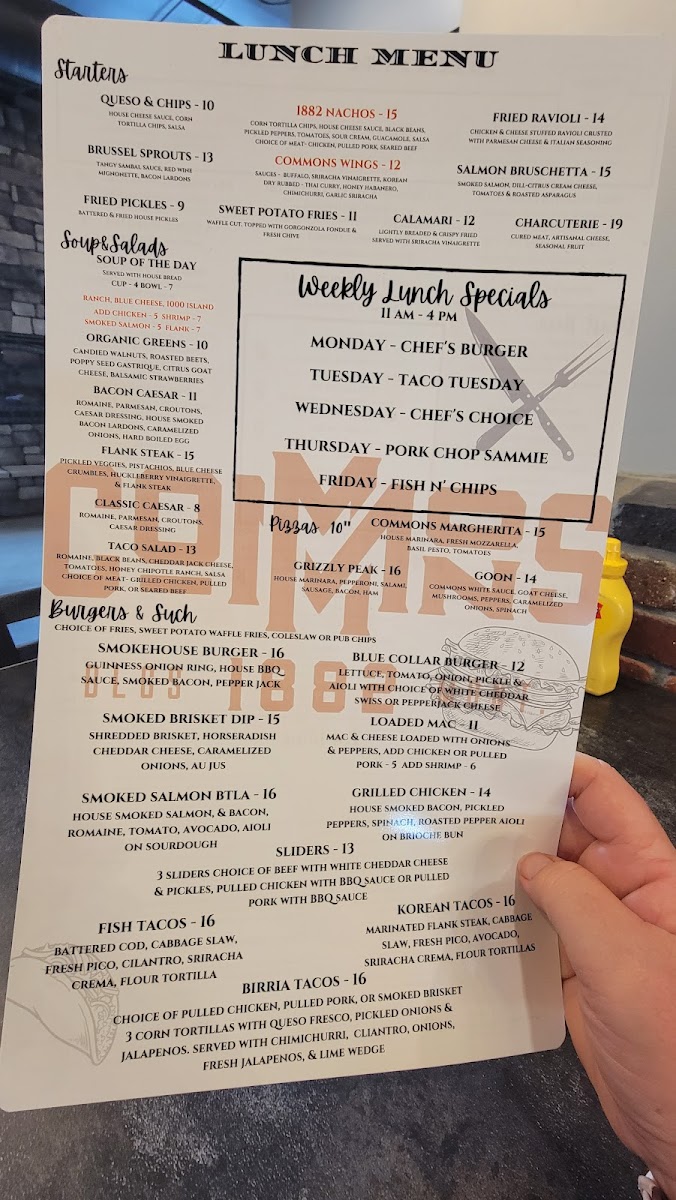 LUNCH MENU
Starters
QUESO & CHIPS - 10
HOUSE CHEESE SAUCE, CORN
TORTILLA CHIPS, SALSA
1882 NACHOS - 15
CORN TORTILLA CHIPS, HOUSE CHEESE SAUCE, BLACK BEANS,
PICKLED PEPPERS, TOMATOES, SOUR CREAM, GUACAMOLE, SALSA
CHOICE OF MEAT- CHICKEN, PULLED PORK, SEARED BEEF
FRIED RAVIOLI - 14
CHICKEN & CHEESE STUFFED RAVIOLI CRUSTED
WITH PARMESAN CHEESE & ITALIAN SEASONING
BRUSSEL SPROUTS - 13
TANGY SAMBAL SAUCE, RED WINE
MIGNONETTE, BACON LARDONS
COMMONS WINGS - 12
SAUCES - BUFFALO, SRIRACHA VINAIGRETTE, KOREAN
DRY RUBBED - THAI CURRY, HONEY HABANERO,
CHIMICHURRI, GARLIC SRIRACHA
SALMON BRUSCHETTA - 15
SMOKED SALMON, DILL-CITRUS CREAM CHEESE,
TOMATOES & ROASTED ASPARAGUS
FRIED PICKLES - 9
BATTERED & FRIED HOUSE PICKLES
SWEET POTATO FRIES - 11
WAFFLE CUT, TOPPED WITH GORGONZOLA FONDUE &
FRESH CHIVE
CALAMARI - 12
LIGHTLY BREADED & CRISPY FRIED
SERVED WITH SRIRACHA VINAIGRETTE
CHARCUTERIE - 19
CURED MEAT, ARTISANAL CHEESE,
SEASONAL FRUIT
Soup&Salads
SOUP OF THE DAY
SERVED WITH HOUSE BREAD
CUP - 4 BOWL - 7
RANCH, BLUE CHEESE, 1000 ISLAND
ADD CHICKEN - 5 SHRIMP - 7
SMOKED SALMON - 5 FLANK - 7
ORGANIC GREENS - 10
CANDIED WALNUTS, ROASTED BEETS,
POPPY SEED GASTRIQUE, CITRUS GOAT
CHEESE, BALSAMIC STRAWBERRIES
BACON CAESAR - 11
ROMAINE, PARMESAN, CROUTONS,
CAESAR DRESSING, HOUSE SMOKED
BACON LARDONS, CARAMELIZED
ONIONS, HARD BOILED EGG
FLANK STEAK - 15
PICKLED VEGGIES, PISTACHIOS, BLUE CHEESE
CRUMBLES, HUCKLEBERRY VINAIGRETTE,
& FLANK STEAK
CLASSIC CAESAR - 8
ROMAINE, PARMESAN, CROUTONS,
CAESAR DRESSING
TACO SALAD - 13
ROMAINE, BLACK BEANS, CHEDDAR JACK CHEESE,
TOMATOES, HONEY CHIPOTLE RANCH, SALSA
CHOICE OF MEAT- GRILLED CHICKEN, PULLED
PORK, OR SEARED BEEF
Weekly Lunch Specials
11 AM - 4 PM
MONDAY - CHEF'S BURGER
TUESDAY - TACO TUESDAY
WEDNESDAY - CHEF'S CHOICE
THURSDAY - PORK CHOP SAMMIE
FRIDAY - FISH N' CHIPS
COMMONS
1882
Pizzas 10"
COMMONS MARGHERITA - 15
HOUSE MARINARA, FRESH MOZZARELLA,
BASIL PESTO, TOMATOES
GRIZZLY PEAK - 16
HOUSE MARINARA, PEPPERONI, SALAMI,
SAUSAGE, BACON, HAM
GOON - 14
COMMONS WHITE SAUCE, GOAT CHEESE,
MUSHROOMS, PEPPERS, CARAMELIZED
ONIONS, SPINACH
Burgers & Such
CHOICE OF FRIES, SWEET POTATO WAFFLE FRIES, COLESLAW OR PUB CHIPS
SMOKEHOUSE BURGER - 16
GUINNESS ONION RING, HOUSE BBQ
SAUCE, SMOKED BACON, PEPPER JACK
BLUE COLLAR BURGER - 12
LETTUCE, TOMATO, ONION, PICKLE &
AIOLI WITH CHOICE OF WHITE CHEDDAR
SWISS OR PEPPERJACK CHEESE
SMOKED BRISKET DIP - 15
SHREDDED BRISKET, HORSERADISH
CHEDDAR CHEESE, CARAMELIZED
ONIONS, AU JUS
LOADED MAC - 11
MAC & CHEESE LOADED WITH ONIONS
& PEPPERS, ADD CHICKEN OR PULLED
PORK - 5 ADD SHRIMP - 6
SMOKED SALMON BTLA - 16
HOUSE SMOKED SALMON, & BACON,
ROMAINE, TOMATO, AVOCADO, AIOLI
ON SOURDOUGH
GRILLED CHICKEN - 14
HOUSE SMOKED BACON, PICKLED
PEPPERS, SPINACH, ROASTED PEPPER AIOLI
ON BRIOCHE BUN
SLIDERS - 13
3 SLIDERS CHOICE OF BEEF WITH WHITE CHEDDAR CHEESE
& PICKLES, PULLED CHICKEN WITH BBQ SAUCE OR PULLED
PORK WITH BBQ SAUCE
FISH TACOS - 16
BATTERED COD, CABBAGE SLAW,
FRESH PICO, CILANTRO, SRIRACHA
CREMA, FLOUR TORTILLA
KOREAN TACOS - 16
MARINATED FLANK STEAK, CABBAGE
SLAW, FRESH PICO, AVOCADO,
SRIRACHA CREMA, FLOUR TORTILLAS
BIRRIA TACOS - 16
CHOICE OF PULLED CHICKEN, PULLED PORK, OR SMOKED BRISKET
3 CORN TORTILLAS WITH QUESO FRESCO, PICKLED ONIONS &
JALAPENOS. SERVED WITH CHIMICHURRI, CLIANTRO, ONIONS,
FRESH JALAPENOS, & LIME WEDGE